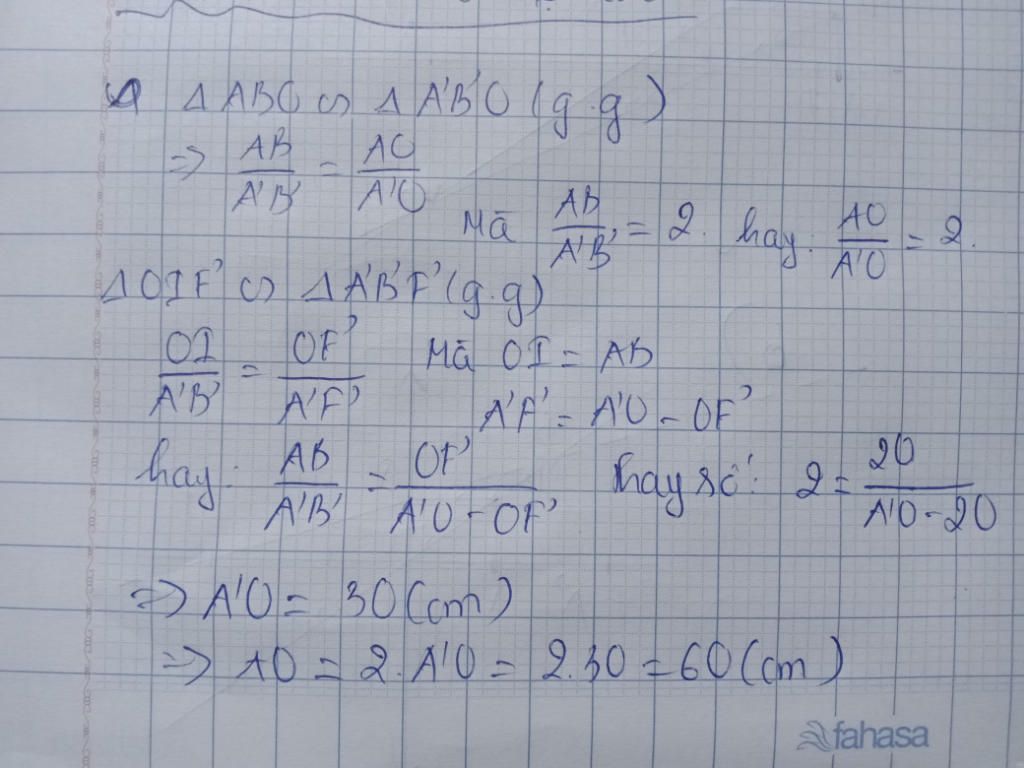 Δ ABO ∽ Δ A'B'O (g.g)
⇒ AB/A'B' = AO/A'O
Mà AB/A'B' = 2. hay: AO/A'O = 2.
Δ OIF' ∽ Δ A'B'F' (g.g)
OI/A'B' = OF'/A'F' Mà OI = AB
A'F' = A'O - OF'
hay: AB/A'B' = OF'/A'O - OF' Thay số: 2 = 20/A'O - 20
⇒ A'O = 30 (cm)
⇒ AO = 2. A'O = 2.30 = 60 (cm)
fahasa